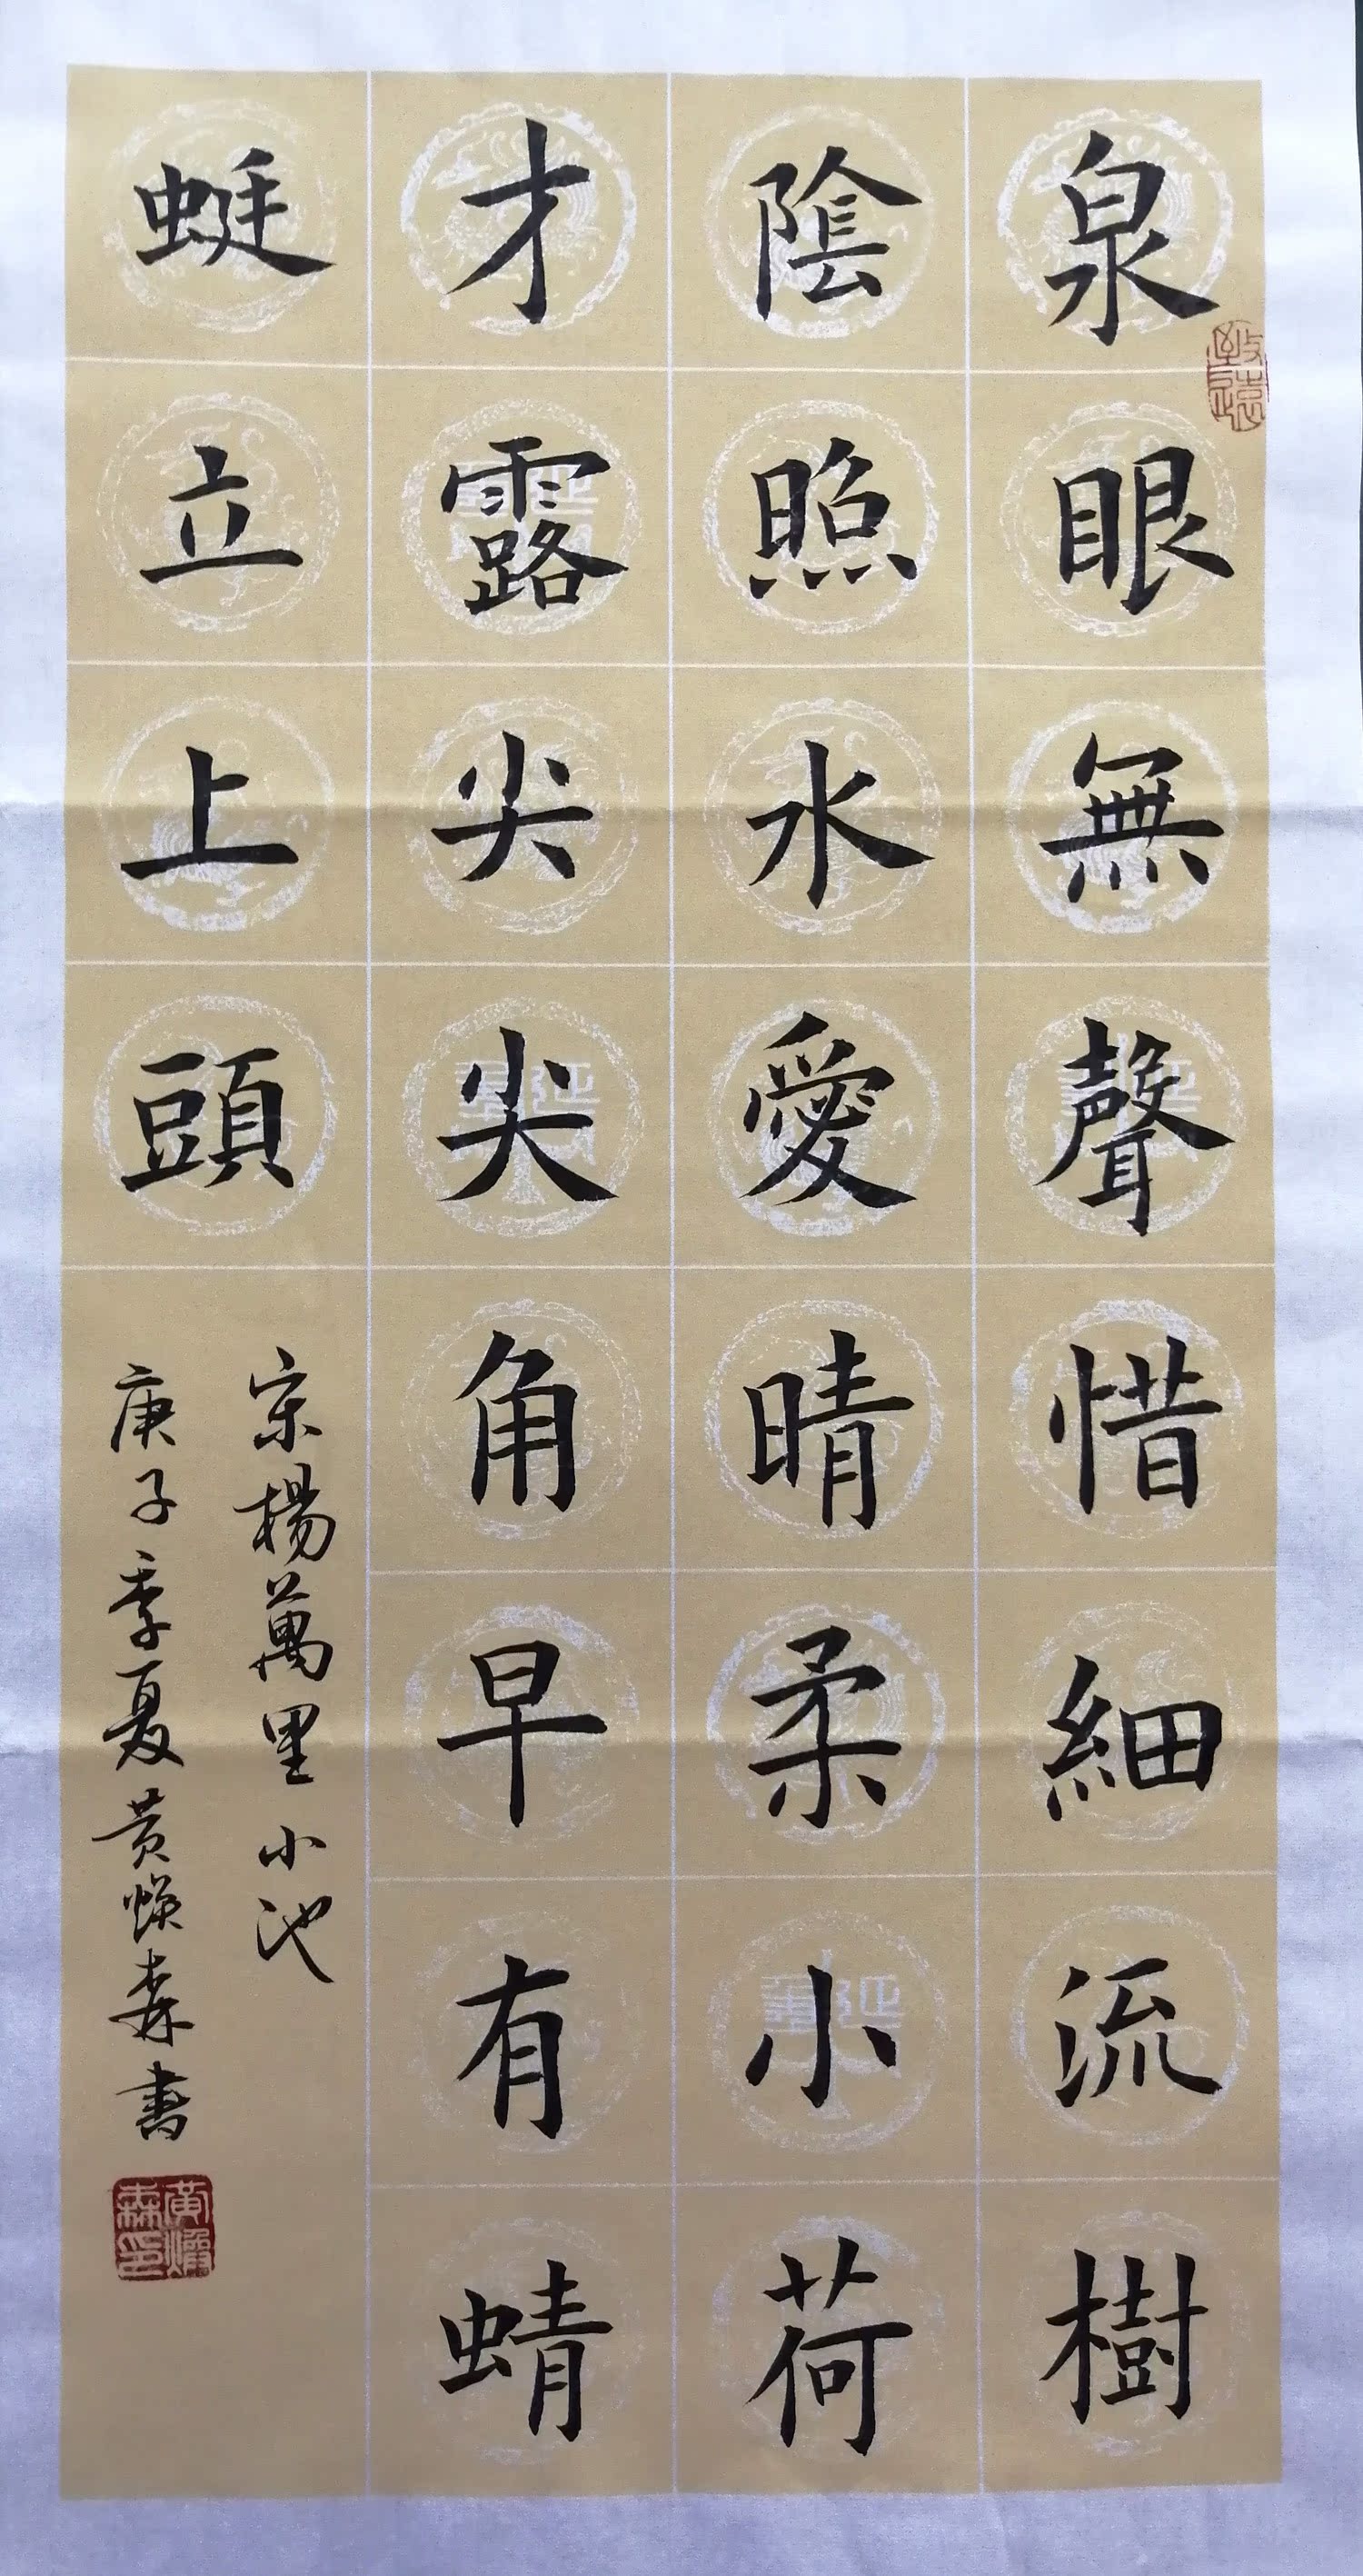 泉眼無聲惜細流樹
陰照水愛晴柔小荷
才露尖尖角早有蜻
蜓立上頭
宋楊萬里小池
庚子季夏黄焕森書
致遠
黄焕森印